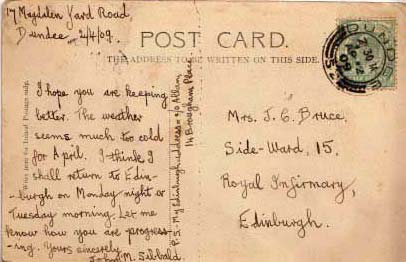 17 Magdalen Yard Road,
Dundee 2/4/09.
POST CARD.
THE ADDRESS TO BE WRITTEN ON THIS SIDE.
I hope you are keeping
better. The weather
seems much too cold
for April. I think I
shall return to Edin-
burgh on Monday night or
Tuesday morning. Let me
know how you are progress-
ing. Yours sincerely
John M. Sibbald
P.S. - My Edinburgh address = c/o Allan,
14 Brougham Place
Mrs. J. C. Bruce,
Side-Ward, 15
Royal Infirmary,
Edinburgh.
DUNDEE